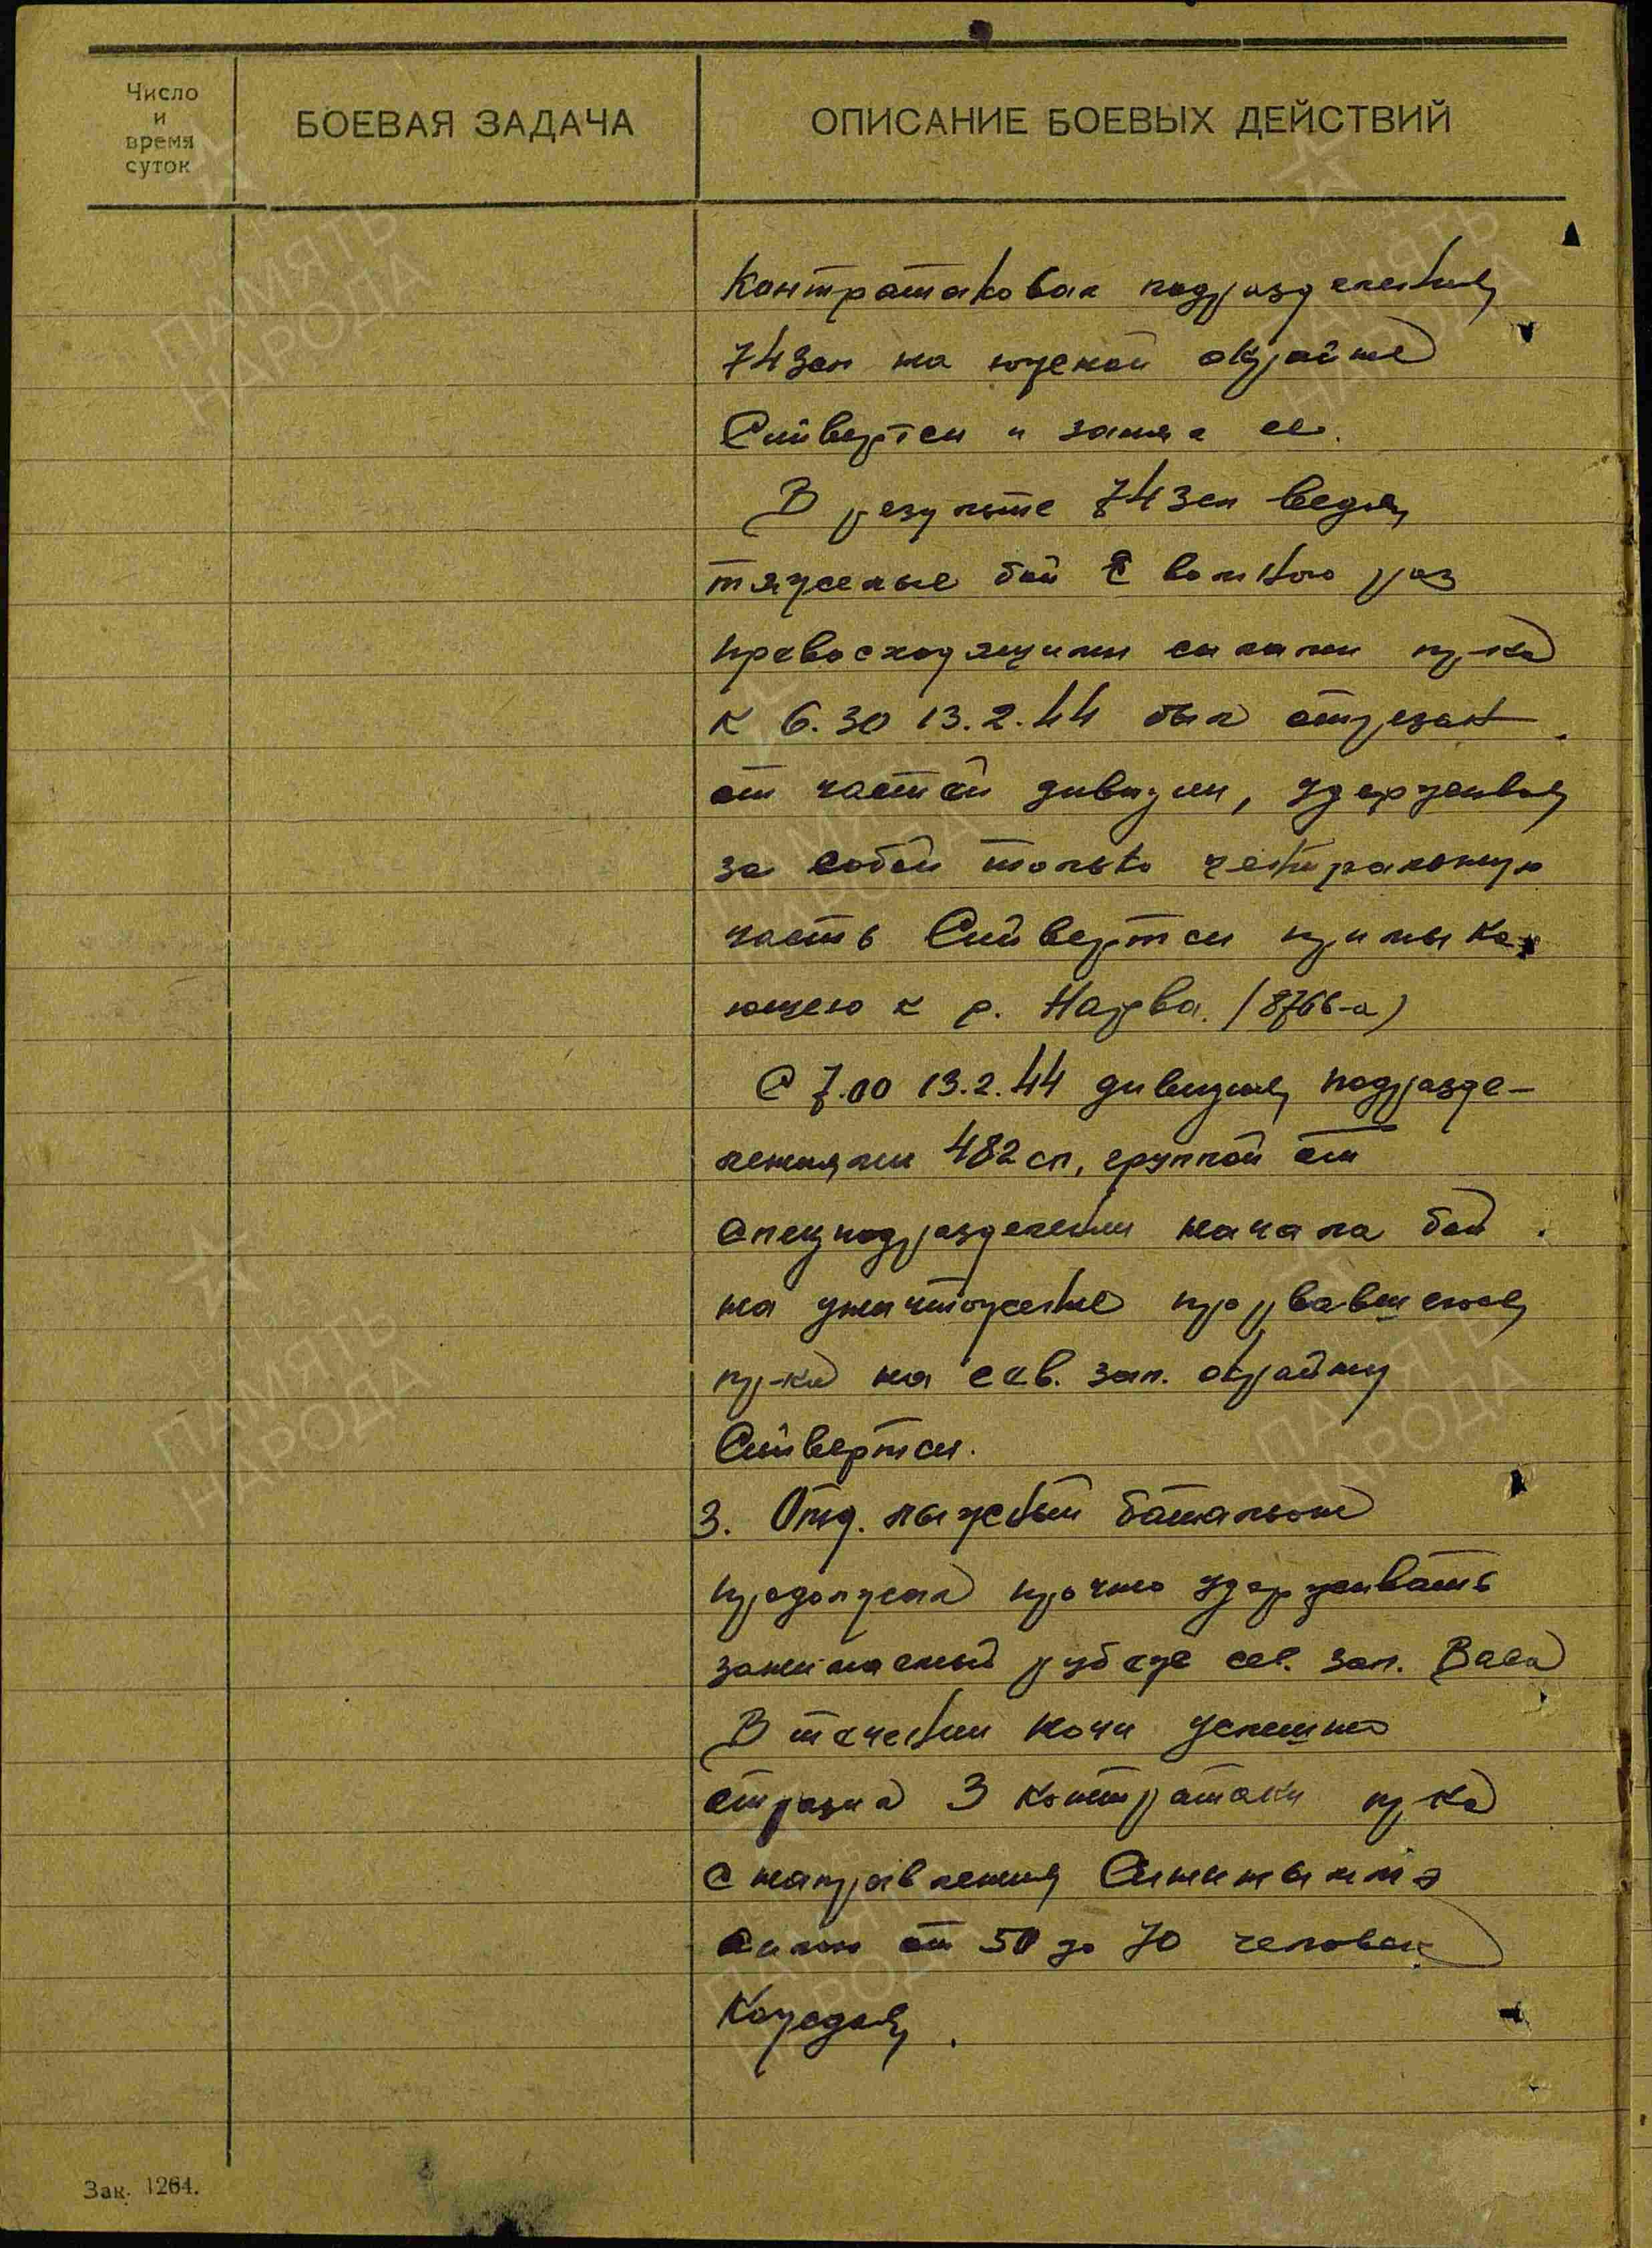 Число
и
время
суток
БОЕВАЯ ЗАДАЧА
ОПИСАНИЕ БОЕВЫХ ДЕЙСТВИЙ
Контратаковал подразделения
743сп на южной окраине
Сийвертси и занял ее.
В резульате 743сп ведя
тяжелые бои с во много раз
превосходящими силами пр-ка
к 6.30 13.2.44 был отрезан
от частей дивизии, удерживая
за собой только центральную
часть Сийвертси примыка
ющею к р. Нарва. (8766-а)
С 7.00 13.2.44 дивизия подразде-
лениями 482 сп, группой от
спецподразделений начала бой
на уничтожение прорвавшегося
пр-ка на сев. зап. окраину
Сийвертси.
3. Отд. лыжный батальон
продолжал прочно удерживать
занимаемый рубеж сев. зап. Васа
В течении ночи успешно
отразил 3 контратаки пр-ка
с направления
силою от 50 до 70 человек
Каждая.
Зак. 1264.
ПАМЯТЬ
НАРОДА